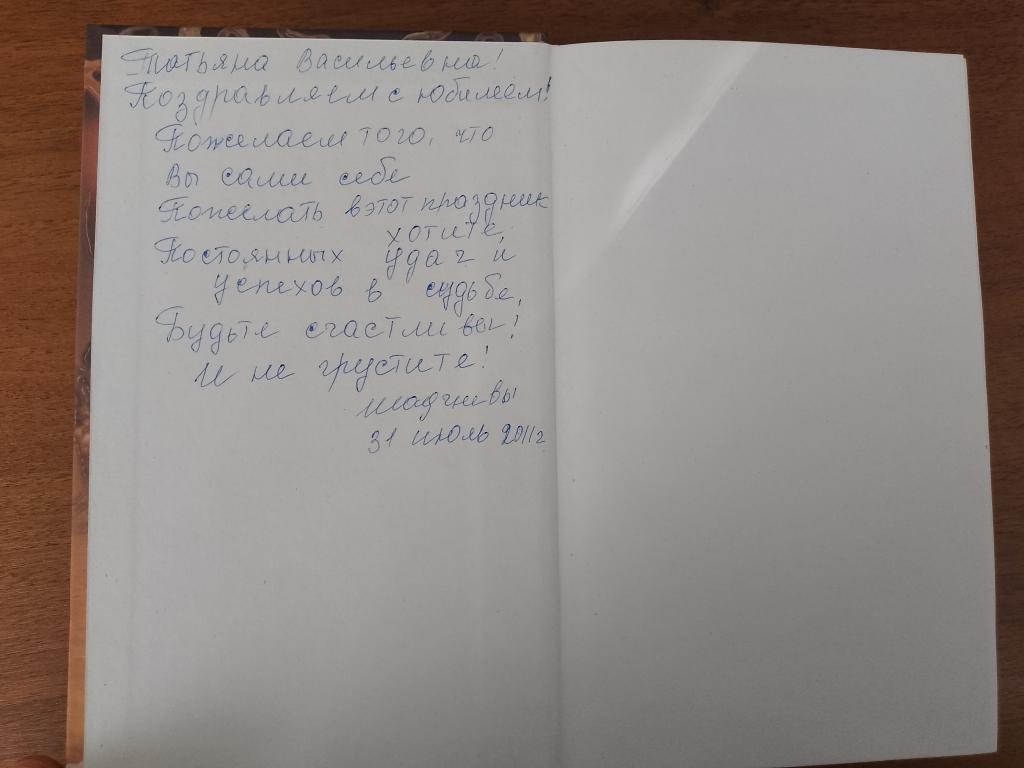 Татьяна Васильевна!
Поздравляем с юбилеем!
Пожелаем того, что
Вы сами себе
Пожелать в этот праздник
хотите,
Постоянных удач и
успехов в судьбе,
Будьте счастливы!
И не грустите!
31 июль 2011г